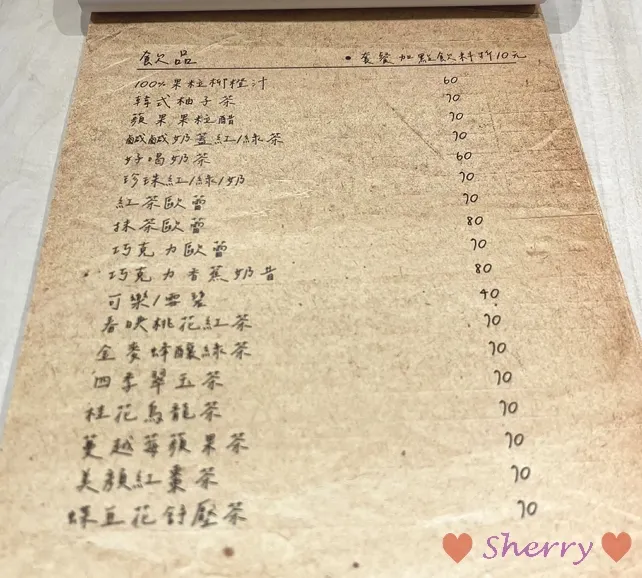 飲品 • 套餐加點飲料折10元
100%果粒柳橙汁 60
韓式柚子茶 70
蘋果果粒醋 70
鹹鹹奶蓋紅/綠茶 70
好喝奶茶 60
珍珠紅/綠/奶 70
紅茶歐蕾 70
抹茶歐蕾 80
巧克力歐蕾 70
• 巧克力香蕉奶昔 80
可樂/雪碧 40
春映桃花紅茶 70
金麥蜂釀綠茶 70
四季翠玉茶 70
桂花烏龍茶 70
蔓越莓蘋果茶 70
美顏紅棗茶 70
蝶豆花舒壓茶 70
Sherry